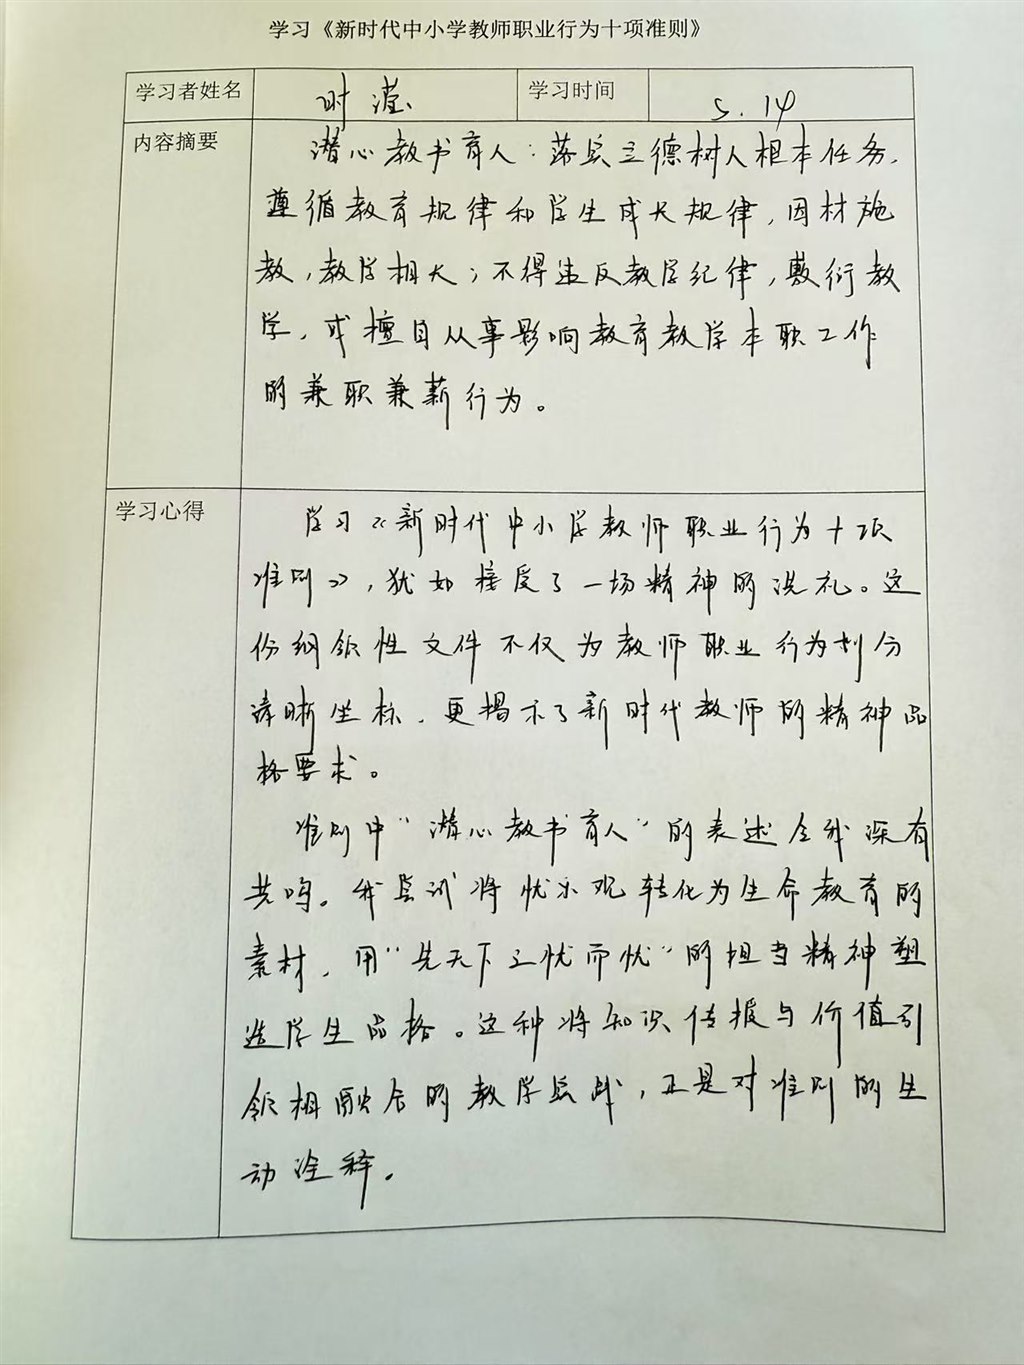 学习《新时代中小学教师职业行为十项准则》
学习者姓名 时滢 学习时间 5.14
内容摘要
潜心教书育人：落实立德树人根本任务，
遵循教育规律和学生成长规律，因材施
教，教学相长；不得违反教学纪律，敷衍教
学，或擅自从事影响教育教学本职工作
的兼职兼薪行为。
学习心得
学习《新时代中小学教师职业行为十项
准则》，犹如接受了一场精神的洗礼。这
份纲领性文件不仅为教师职业行为划分
清晰坐标，更揭示了新时代教师的精神品
格要求。
准则中“潜心教书育人”的表述令我深有
共鸣。我尝试将忧乐观转化为生命教育的
素材，用“先天下之忧而忧”的担当精神塑
造学生品格。这种将知识传授与价值引
领相融合的教学实践，正是对准则的生
动诠释。